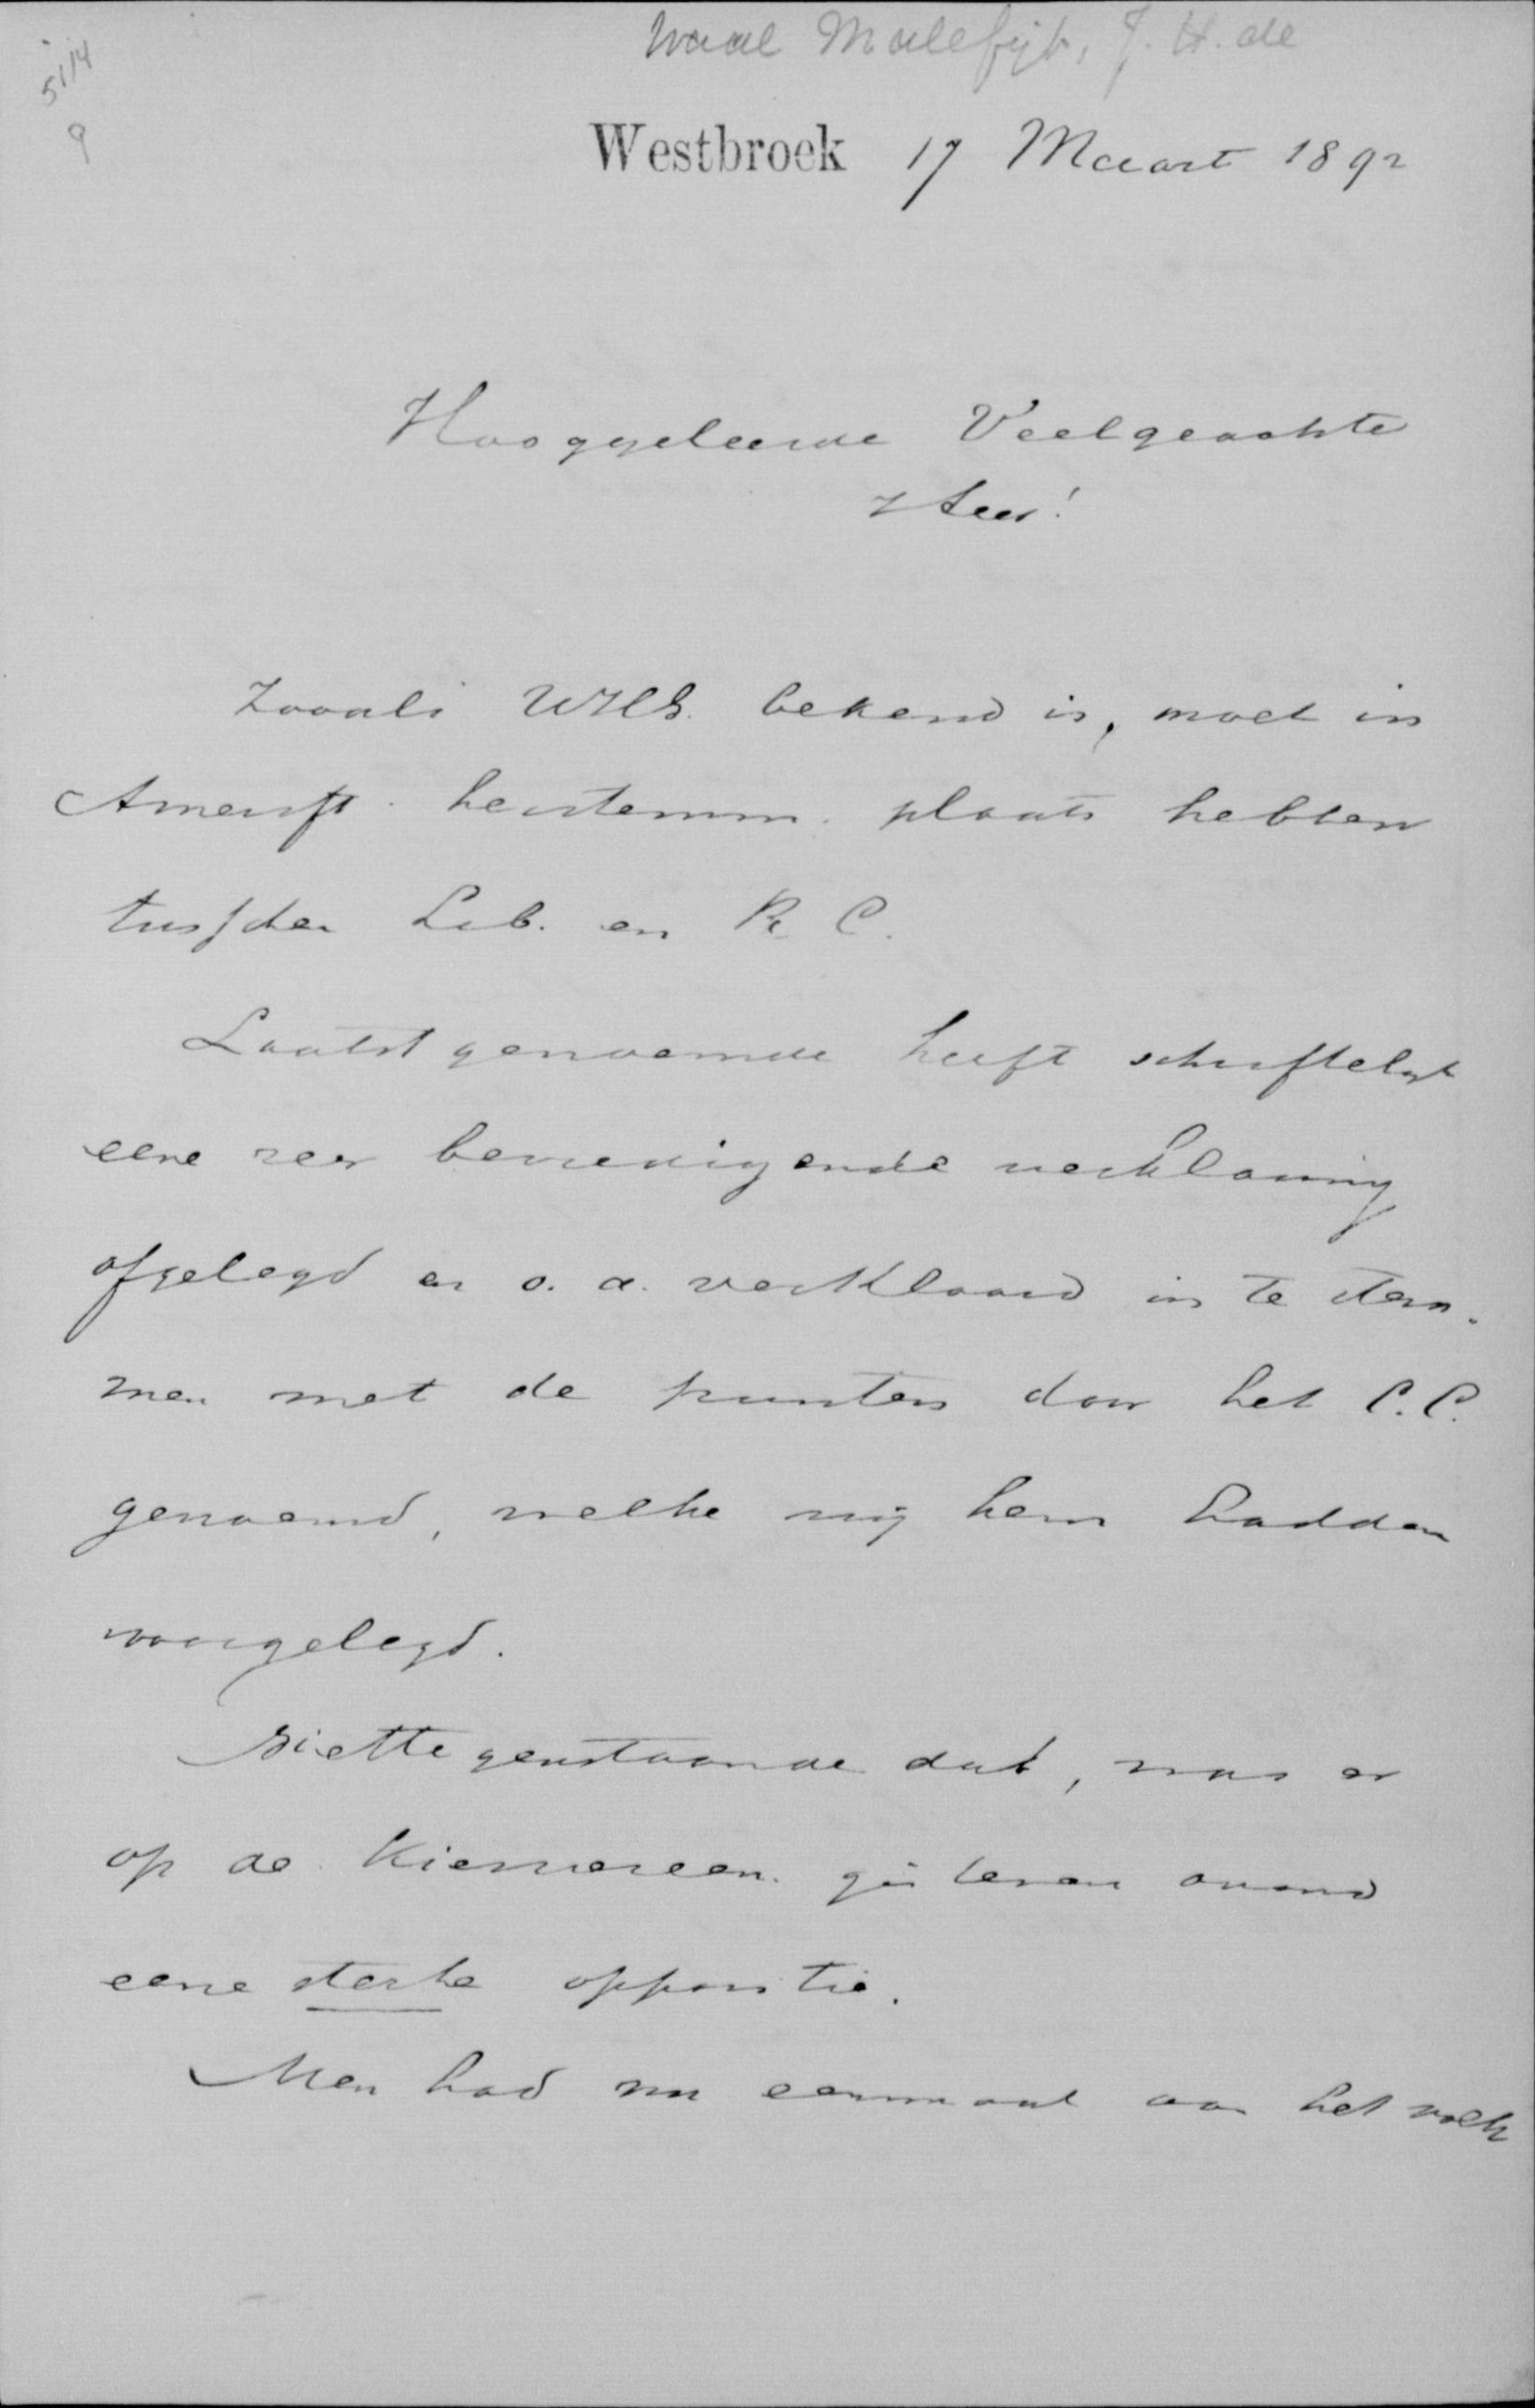 Waal Malefijt, J. H. de
5114
9
Westbroek 17 Maart 1892
Hooggeleerde Veelgeachte
Heer!
Zooals UHG. bekend is, moet in
Amersft. herstemm. plaats hebben
tusschen Lib. en R. C.
Laatstgenoemde heeft schriftelijk
eene zeer bevredigende verklaring
afgelegd en o. a. verklaard in te stem-
men met de punten door het C. C.
genoemd, welke wij hem hadden
voorgelegd.
Niettegenstaande dat, was er
op de Kiesvereen. gisteren avond
eene sterke oppositie.
Men had nu eenmaal aan het volk